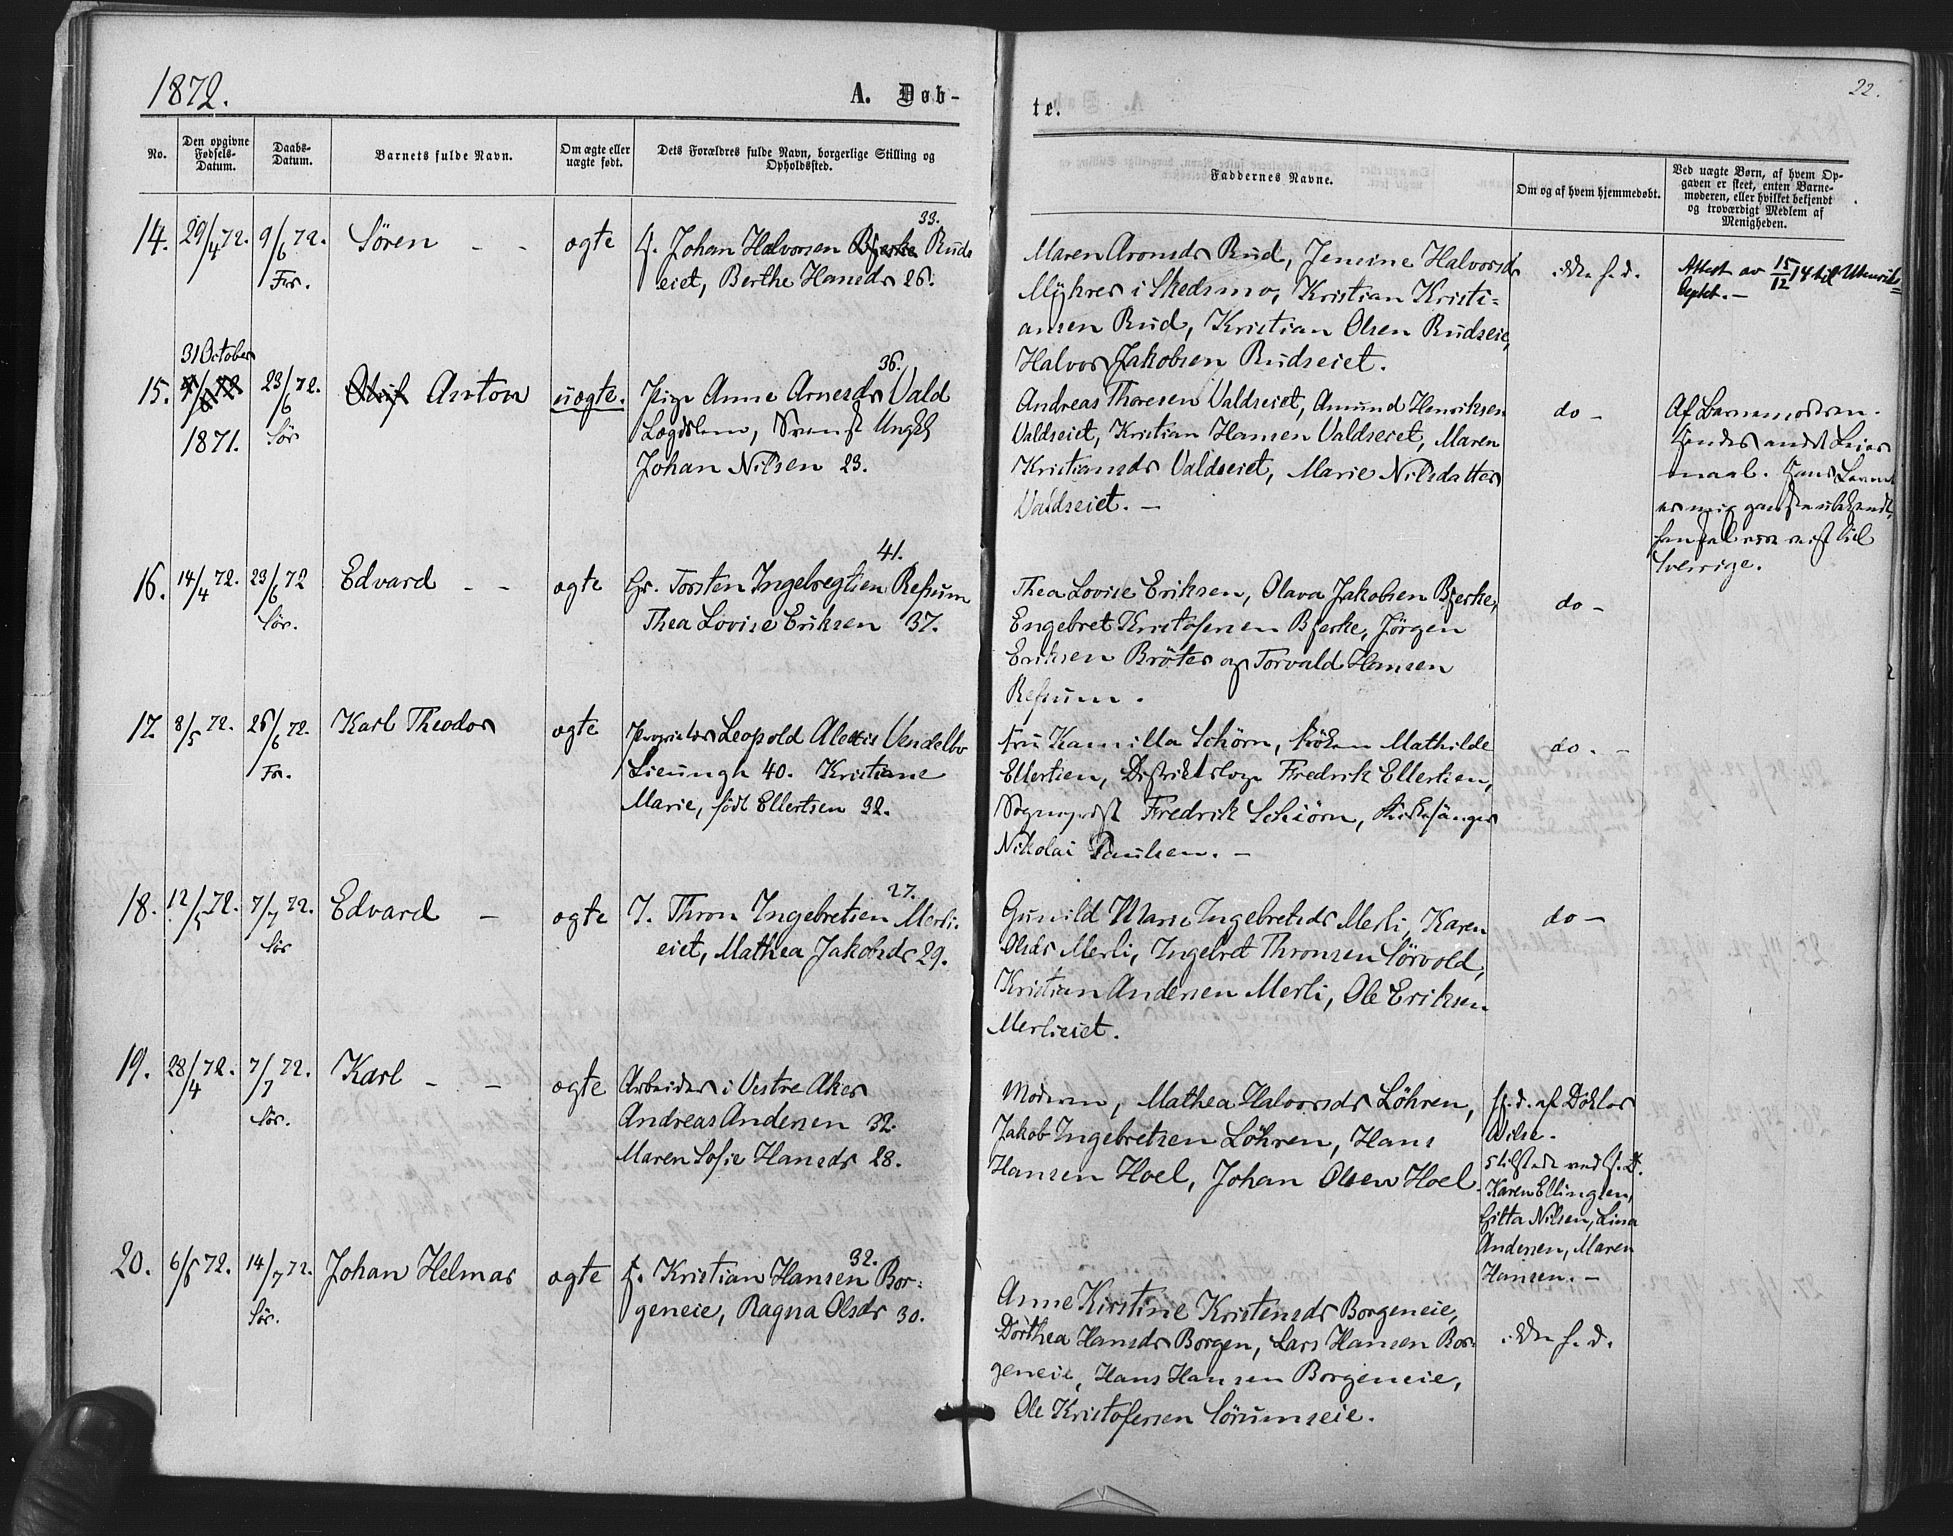 1872.
A. Døb-
te.
22.
No.
Den opgivne Fødsels-Datum.
Daabs-Datum.
Barnets fulde Navn.
Om ægte eller uægte født.
Dets Forældres fulde Navn, borgerlige Stilling og Opholdssted.
Faddernes Navne.
Om og af hvem hjemmedøbt.
Ved uægte Børn, af hvem Opgaven er skeet, enten Barnemoderen, eller hvilket bekjendt og troværdigt Medlem af Menigheden.
14. 29/4 72. 9/6 72. Søren - - ægte
Fr.
33.
Johan Halvorsen Bjerke Ruds
eiet, Berthe Hansdr 26.
Maren Aronsdr Rud, Jensine Halvorsdr
Myhrer i Skedsmo, Kristian Kristi-
ansen Rud, Kristian Olsen Rudseie,
Halvor Jakobsen Rudseiet.
ikke h. d.
Attest av 15/12 14 til Utenriks-
deptet. -
31 October
15. 1871. 23/6 72. Olaf Anton uægte.
Sør
36.
Pige Anne Arnesdr Vald
Ungk
Johan Nilsen 23.
Andreas Thoresen Valdseiet, Amund Henriksen
Valdseiet, Kristian Hansen Valdseiet, Maren
Kristiansdr Valdseiet, Marie Nilsdatter
Valdseiet. -
do -
Af Barnemoderen.
Hendes andet Leier
maal. Hans Lavm
er mig ganske ubekjendt,
han skal være reist til
Sverrige.
16. 14/4 72. 23/6 72 Edvard - - ægte
Sør.
41.
Gr. Torsten Ingebregtsen Refsum
Thea Lovise Eriksen 37.
Thea Lovise Eriksen, Olava Jakobsen Bjerke,
Engebret Kristofersen Bjerke, Jørgen
Eriksen Brøter og Torvald Hansen
Refsum.
do -
17. 8/5 72. 26/6 72. Karl Theodor ægte
Fr.
Proprietær Leopold Alexis Vendelbo
Lieungh 40. Kristiane
Marie, født Ellertsen 32.
Fru Kamilla Schiørn, Frøken Mathilde
Ellertsen, Distriktslæge Fredrik Ellertsen,
Sogneprest Fredrik Schiørn, Kirkesanger
Nikolai Paulsen. -
do. -
18. 12/5 72. 7/7 72. Edvard - ægte
Sør
27.
I. Thron Ingebretsen Merli-
eiet, Mathea Jakobsdr 29.
Gunild Marie Ingebretsdr Merli, Karen
Olsdr Merli, Ingebret Thronsen Sørvold,
Kristian Andersen Merli, Ole Eriksen
Merlieiet.
do -
19. 28/4 72. 7/7 72. Karl - - ægte
Sør.
Arbeider i Vestre Aker
Andreas Andersen 32.
Maren Sofie Hansdr 28.
Moderen, Mathea Halvorsdr Løhren,
Jakob Ingebretsen Løhren, Hans
Hansen Hoel, Johan Olsen Hoel.
H. d. af Doktor
Wilse.
tilstede ved H. D.
Karen Ellingsen,
Gitta Nilsen, Lina
Andersen, Maren
Hansen. -
20. 6/5 72. 14/7 72. Johan Helmar ægte
Sør.
32.
Kristian Hansen Bor-
geneie, Ragna Olsdr 30.
Anne Kirstine Kristensdr Borgeneie,
Dorthea Hansdr Borgen, Lars Hansen Bor-
geneie, Hans Hansen Borgeneie,
Ole Kristofersen Sørumseie.
ikke h. d.